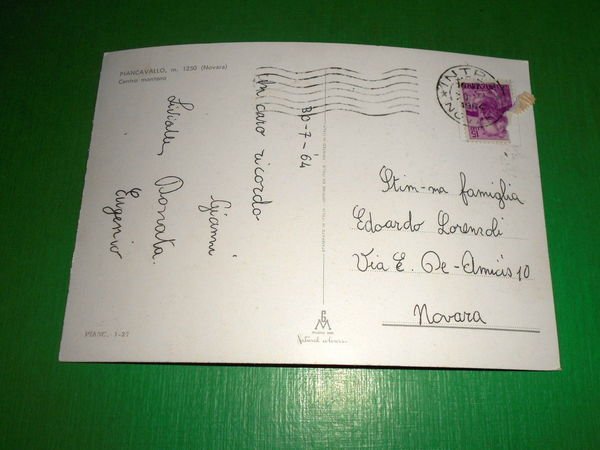 PIANCAVALLO, m. 1250 (Novara)
Centro montano
30-7-'64
Un caro ricordo
Gianni
Donata
Eugenio
Stim-ma famiglia
Edoardo
Via E. De-Amicis 10
Novara
PIANC. 1-27
GM
Natural colour
INTRA